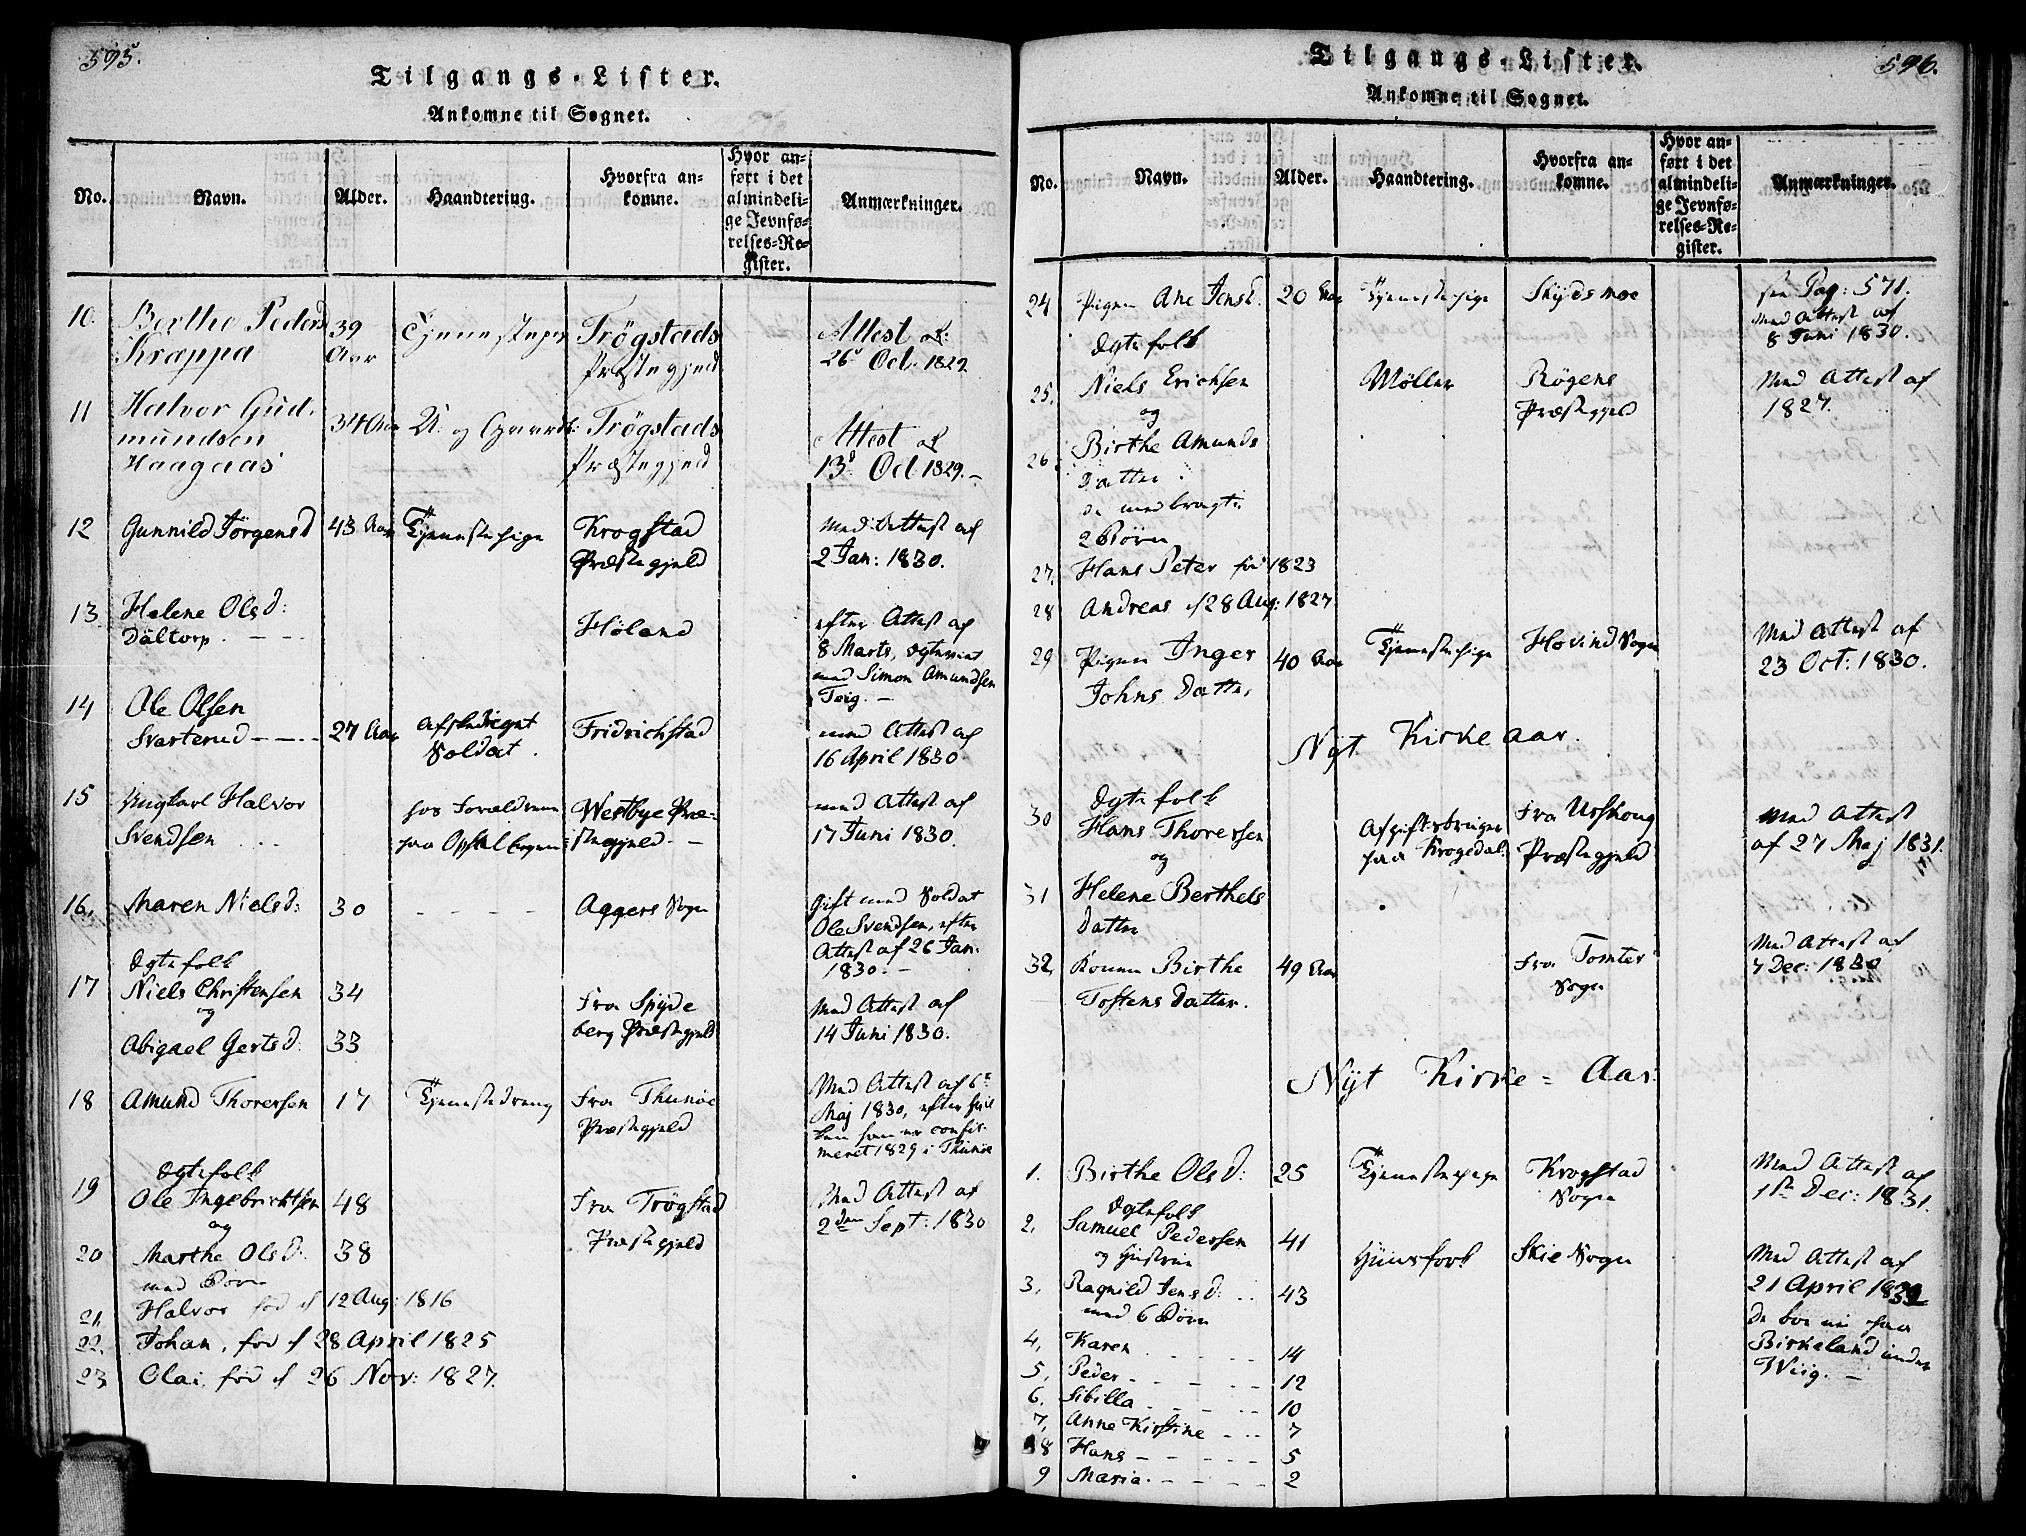 595.
Tilgangs-Lister.
Ankomne til Sognet.
No. Navn. Alder. Haandtering. Hvorfra ankomne. Hvor anført i det almindelige Jevnførelses-Register. Anmærkninger.
10. Berthe Peders 39 Tjenestepige Trögstads Attest af
Kræppa Aar Præstegjeld 26d Oct. 1829
11 Halvor Gud- 34 Aar U: og Gaardb: Trögstads Attest af
mundsen Præstegjeld 13d Oct 1829.-
Haagaas
12 Gunnild Jörgensd 43 Aar Tjenestepige Krogstad Med Attest af
Præstegjeld 2 Jan: 1830.
13. Helene Olsd: Höland efter Attest af
Dältorp. - - - 8 Marts, egteviet
med Simon Amundsen
Teig. -
14 Ole Olsen 27 Aar Afskediget Fridrichstad med Attest af
Svarterud - - - Soldat. 16 April 1830
15 Ungkarl Halvor hos Forældrene Westbye Præ- med Attest af
Svendsen . . . paa Opsal stegjeld. - 17 Juni 1830.
16. Maren Nielsd: 30 - - - - Aggers Sogn gift med Soldat
Ole Svendsen, efter
Attest af 26 Jan.
1830. -
Egtefolk
17 Niels Christensen 34 Fra Spyde Med Attest af
og berg Præstegjeld 14 Juni 1830.
Abigael Gertsd: 33
18 Amund Thorersen 17 Tjenestedreng Fra Thunöe Med Attest af 6te
Præstegjeld Maj 1830, efter hvil
ken han er confir-
meret 1829 i Thunöe
Egtefolk
19 Ole Ingebrichtsen 48 Fra Trögstad Med Attest af
og Præstegjeld 2den Sept: 1830
20 Marthe Olsd. 38
med Börn
21. Halvor fød d 12 Aug: 1816
22. Johan, fød d 28 April 1825
23 Olai, fød d 26 Nov: 1827.
596.
Tilgangs-Lister.
Ankomne til Sognet.
No. Navn. Alder. Haandtering. Hvorfra ankomne. Hvor anført i det almindelige Jevnførelses-Register. Anmærkninger.
24 Pigen Ane Jensd. 20 Aar Tjenestepige Skydsmoe see Pag: 571.
Med Attest af
8 Juni 1830.
Egtefolk
25. Niels Erichsen Møller Røgens Med Attest af
og Præstegjeld 1827.
26. Birthe Amunds
Datter.
de medbragte
2 Børn
27. Hans Peter fød 1823
28 Andreas d 28 Aug: 1827
29 Pigen Inger 40 Aar Tjenestepige Hovind Sogn Med Attest af
Johns Datter 23 Oct: 1830.
Nyt Kirke aar.
Egtefolk
30 Hans Thoresen Afgiftsbruger Fra Urskoug Med Attest
og paa Krogedal: Præstegjeld af 27 Maj 1831.
31 Helene Berthels
Datter
32. Konen Birthe 49 Aar Fra Tomter Med Attest af
Tostens Datter. Sogn 7 Dec: 1830
Nyt Kirke = Aar.
1. Birthe Olsd: 25 Tjenestepige Krogstad Med Attest af
Sogn 1ste Dec: 1831.
Egtefolk
2. Samuel Pedersen 41 Huusfolk Skie Sogn Med Attest af
og Hustrue 21 April 1832
3. Ragnild Jensd: . . 43 De boe nu paa
med 6 Børn Birkeland under
4. Karen - - - - - 14 Wiig. -
5. Peder - - - - - 12
6. Sibilla - - - - - 10
7. Anne Kirstine - - - 7
8 Hans - - - - - 5
9 Maria. - - - - 2